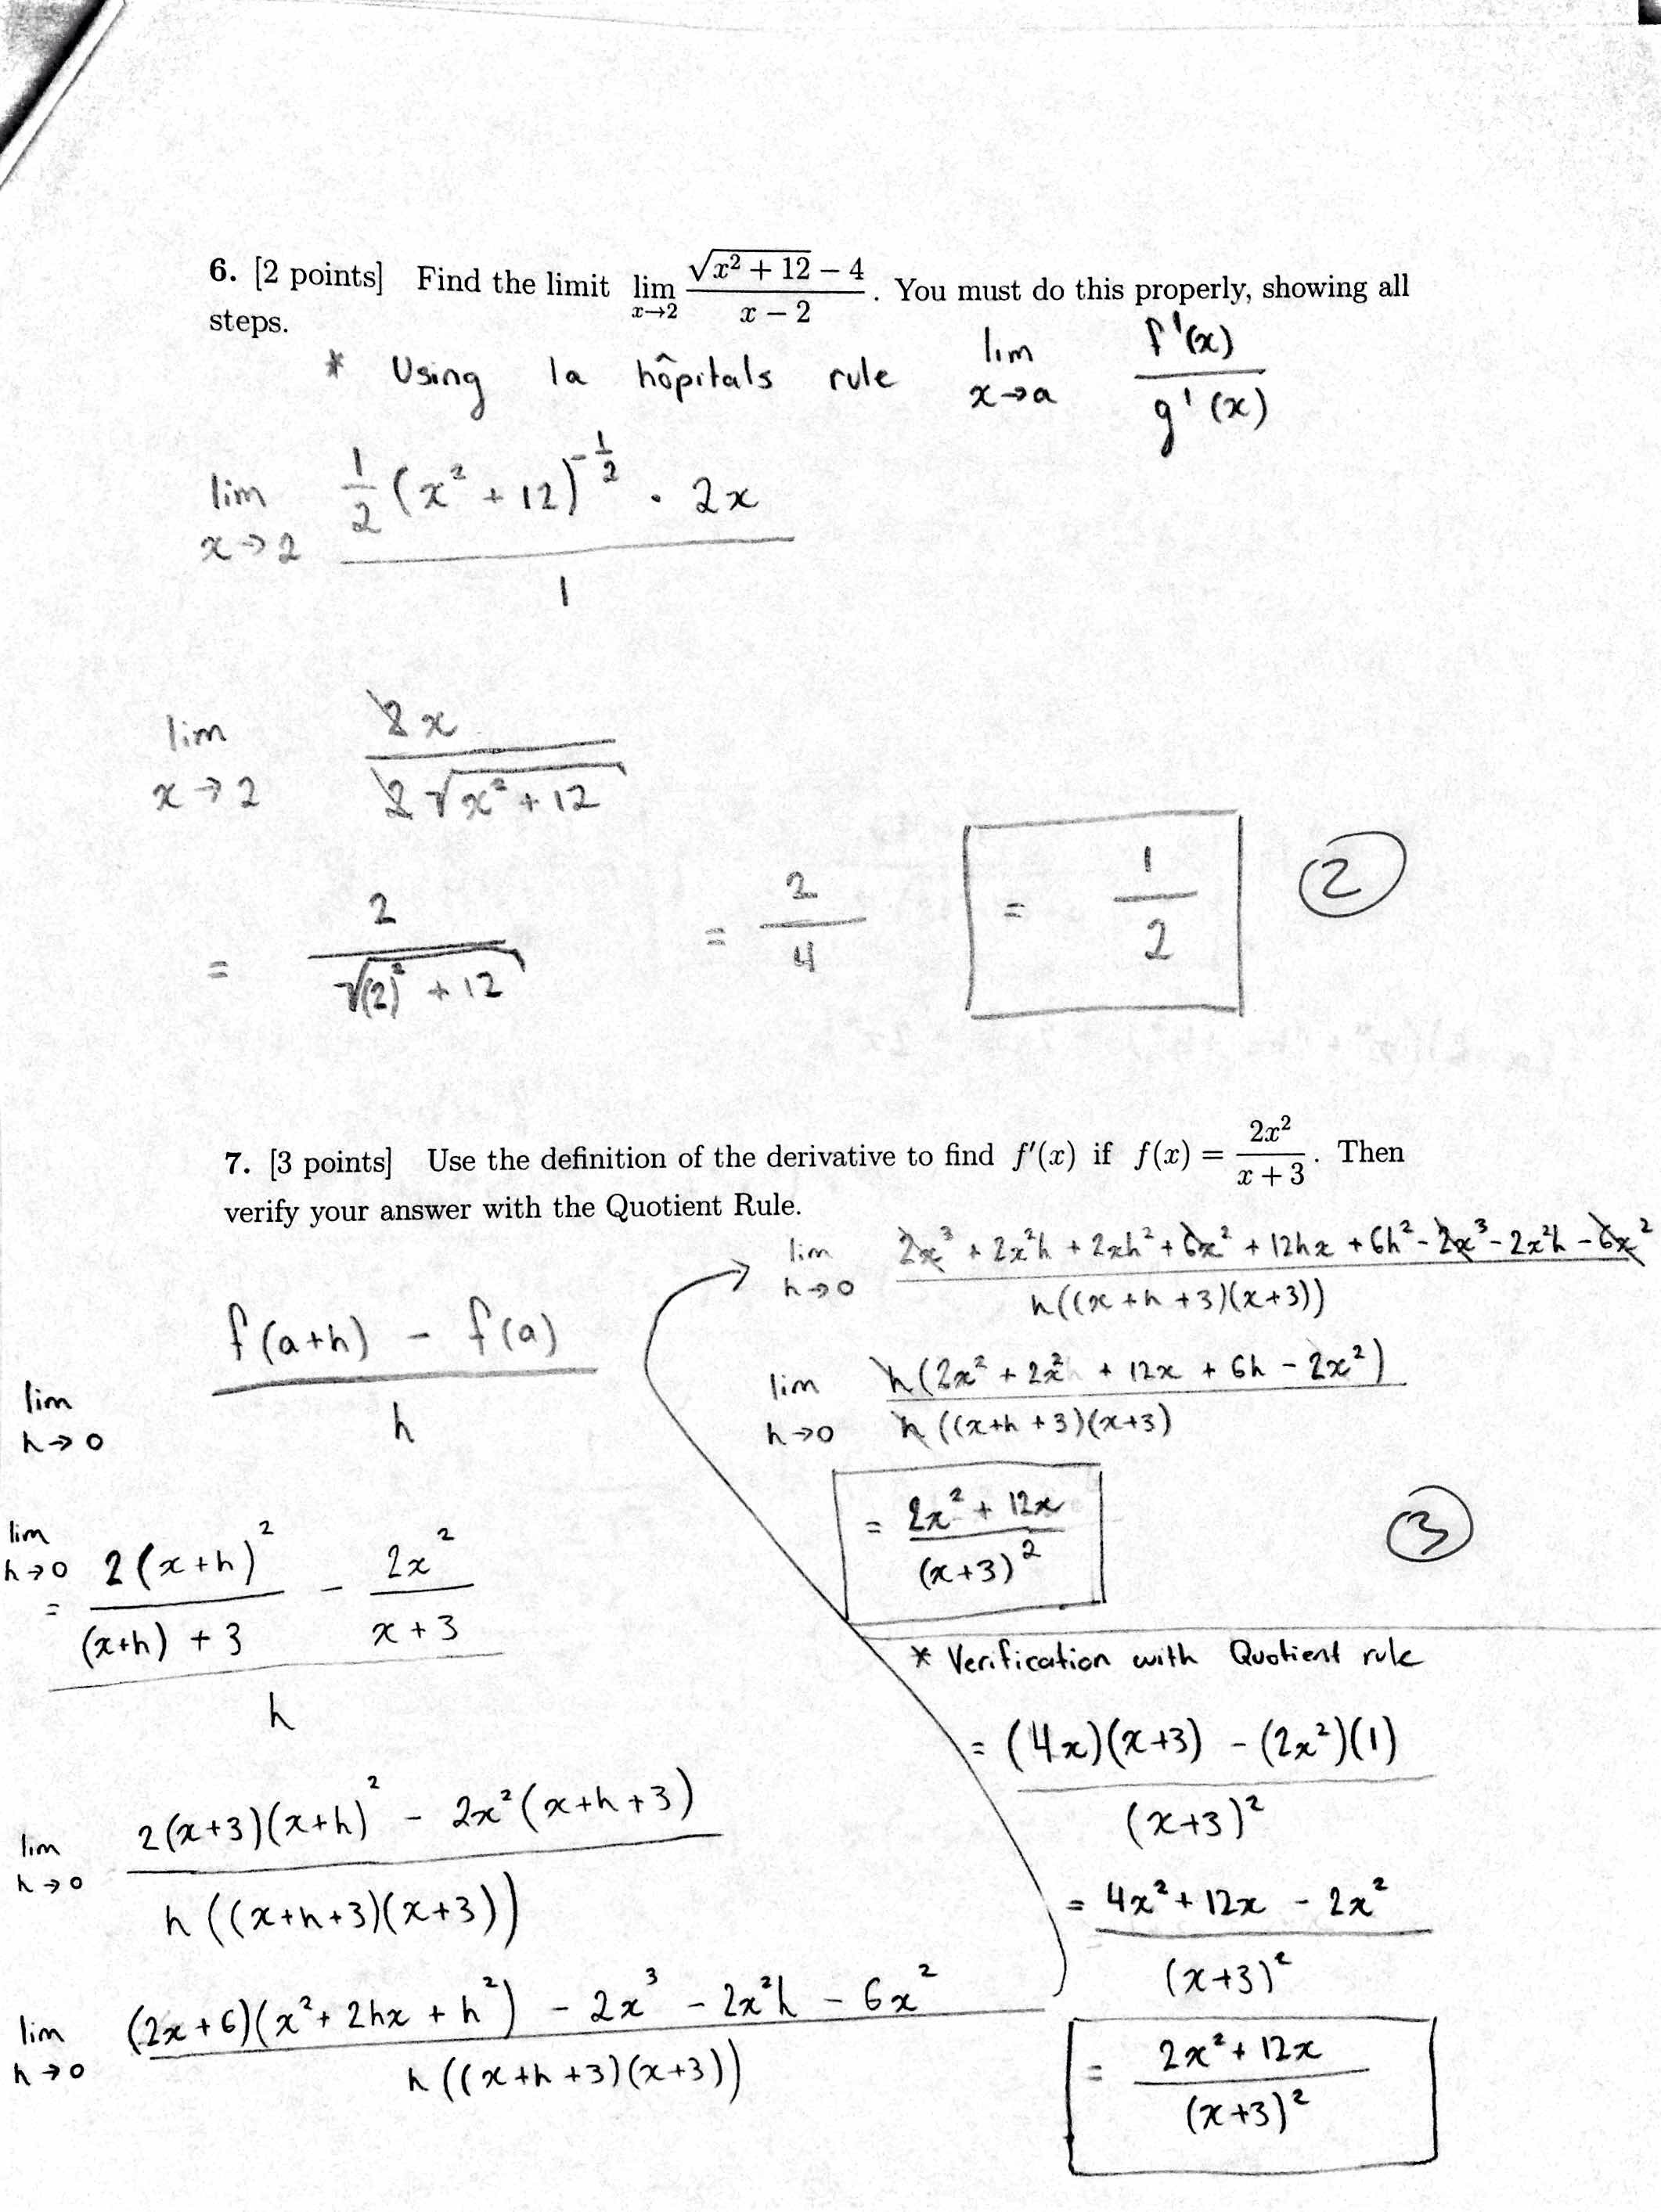 6. [2 points] Find the limit lim x→2 (√(x² + 12) − 4)/(x − 2). You must do this properly, showing all
steps.
* Using la hôpitals rule lim x→a f'(x)/g'(x)
lim x→2 (1/2 (x² + 12)^(-1/2) · 2x)/1
lim x→2 2x/(2√(x² + 12))
= 2/√((2)² + 12) = 2/4 = 1/2 2
7. [3 points] Use the definition of the derivative to find f′(x) if f(x) = 2x²/(x + 3). Then
verify your answer with the Quotient Rule.
lim h→0 (f(a+h) − f(a))/h
lim h→0 = (2(x+h)²/((x+h) + 3) − 2x²/(x + 3))/h
lim h→0 (2(x+3)(x+h)² − 2x²(x+h+3))/(h((x+h+3)(x+3)))
lim h→0 ((2x+6)(x² + 2hx + h²) − 2x³ − 2x²h − 6x²)/(h((x+h+3)(x+3)))
lim h→0 (2x³ + 2x²h + 2xh² + 6x² + 12hx + 6h² − 2x³ − 2x²h − 6x²)/(h((x+h+3)(x+3)))
lim h→0 h(2x² + + 12x + 6h − 2x²)/(h((x+h+3)(x+3))
= (2x² + 12x)/(x+3)² 3
* Verification with Quotient rule
= ((4x)(x+3) − (2x²)(1))/(x+3)²
= (4x² + 12x − 2x²)/(x+3)²
= (2x² + 12x)/(x+3)²